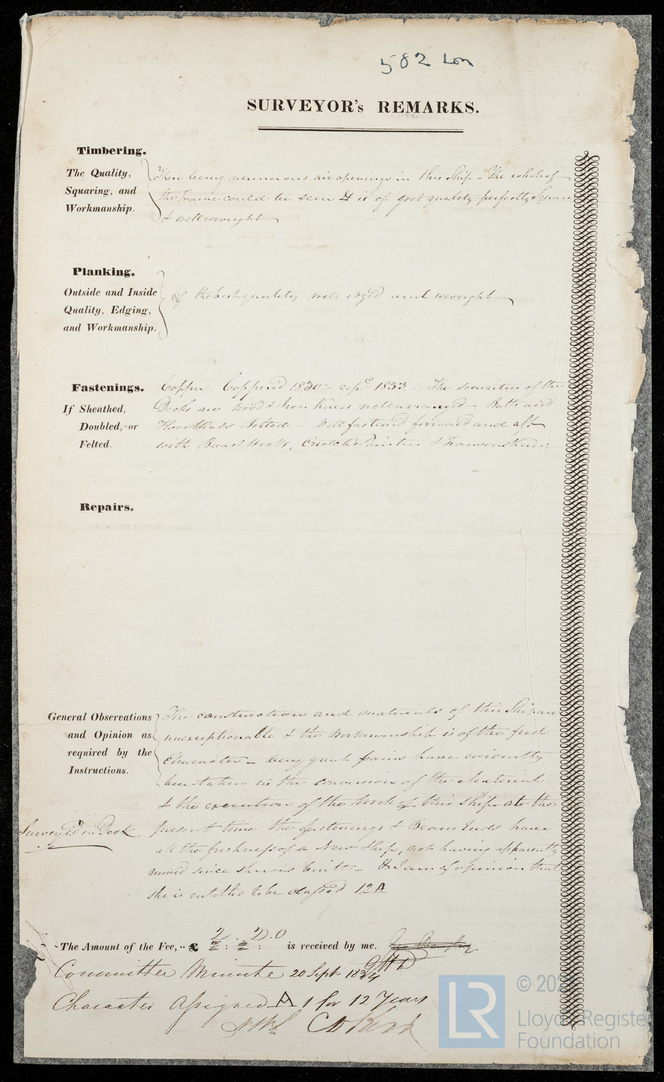 582 Ton
SURVEYOR's REMARKS.
Timbering.
The Quality,
Squaring, and
Workmanship.
There being numerous air openings in this Ship - The whole of
the frame could be seen & is of good quality perfectly Square
& well wrought
Planking.
Outside and Inside
Quality, Edging,
and Workmanship.
Of the best quality well edged and wrought
Fastenings.
If Sheathed,
Doubled, or
Felted.
Copper. Coppered 1830 - 1833 - The securities of the
Decks are Wood & Iron Knees well arranged - Butts and
Bolted - Well fastened forward and aft
with Breast Hooks, Crutches Pointers & Transom Knees
Repairs.
General Observations
and Opinion as
required by the
Instructions.
The construction and materials of this Ship are
unexceptionable & the workmanship is of the first
Character - very great pains have evidently
been taken in the conversion of the material
& the execution of the work of this Ship - at the
present time the fastenings & Beam Ends have
all the freshness of a New Ship, not having apparently
moved since she was built - & I am of opinion that
she is entitled to be classed 12 A
Surveyed in Dock
The Amount of the Fee, £ 2 : 2 : 0 is received by me.
Committee Minute 20 Sept 1834
Character Assigned A 1 for 12 Years
© 202
LR
Lloyd's Register
Foundation